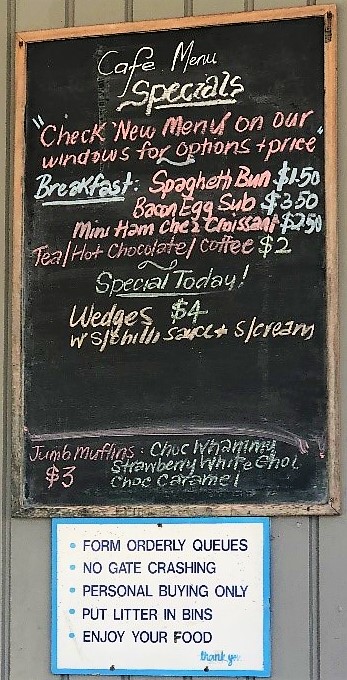 Cafe Menu
Specials
"Check 'New Menu' on our
windows for options + price"
Breakfast: Spaghetti Bun $1.50
Bacon Egg Sub $3.50
Mini Ham Chez Croissant $2.50
Tea/Hot Chocolate/Coffee $2
Special Today!
Wedges $4
w S/chilli sauce + s/cream
Jumb Muffins : Choc Whammy
Strawberry White Choc
$3 Choc Caramel
• FORM ORDERLY QUEUES
• NO GATE CRASHING
• PERSONAL BUYING ONLY
• PUT LITTER IN BINS
• ENJOY YOUR FOOD
thank you